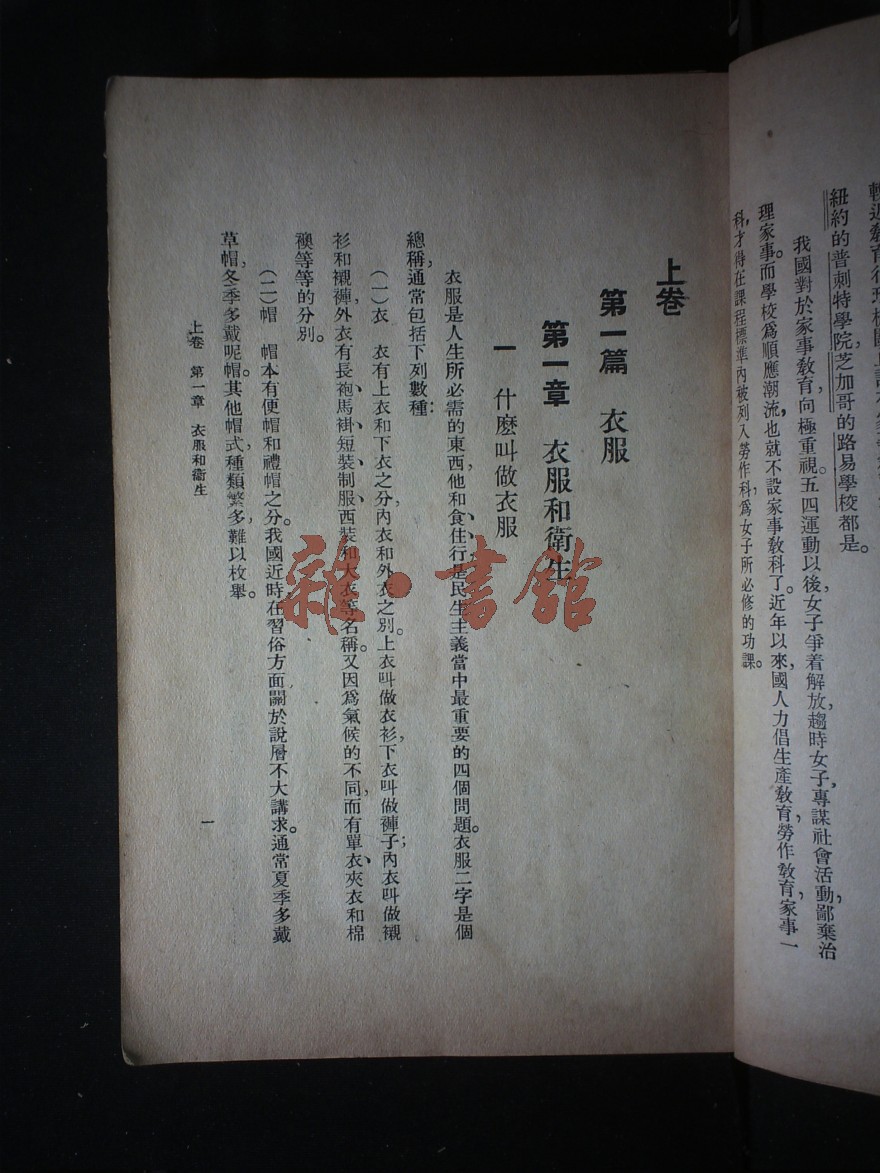 紐約的普剌特學院,芝加哥的路易學校都是。
我國對於家事教育,向極重視。五四運動以後,女子爭着解放,趨時女子,專謀社會活動,鄙棄治
理家事。而學校爲順應潮流,也就不設家事教科了。近年以來,國人力倡生產教育,勞作教育,家事一
科,才得在課程標準內被列入勞作科,爲女子所必修的功課。
上卷
第一篇 衣服
第一章 衣服和衛生
一 什麽叫做衣服
衣服是人生所必需的東西,他和食、住、行是民生主義當中最重要的四個問題。衣服二字是個
總稱,通常包括下列數種:
(一)衣 衣有上衣和下衣之分,內衣和外衣之別。上衣叫做衣衫,下衣叫做褲子;內衣叫做襯
衫和襯褲,外衣有長袍、馬褂、短裝、制服、西裝和大衣等名稱。又因爲氣候的不同,而有單衣、夾衣和棉
襖等等的分別。
(二)帽 帽本有便帽和禮帽之分。我國近時在習俗方面關於說層不大講求。通常夏季多戴
草帽,冬季多戴呢帽。其他帽式,種類繁多,難以枚舉。
上卷 第一章 衣服和衞生
一
雜·書館